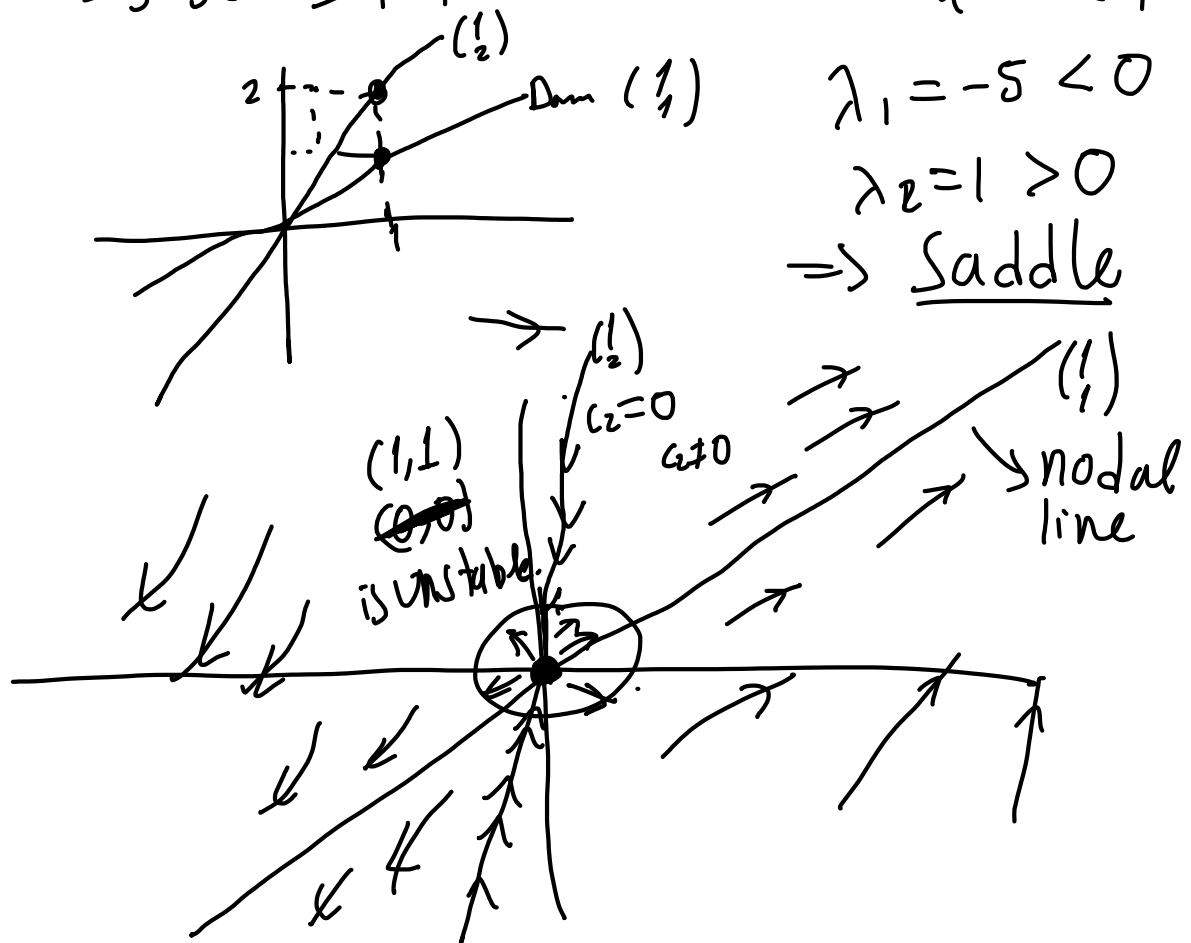 (1 2)
2
Dom (1 1)
1
λ₁ = -5 < 0
λ₂ = 1 > 0
=> Saddle
→ (1 2)
c₂ = 0
c₂ ≠ 0
(1 1)
→ nodal
line
(1,1)
(0,0)
is unstable.